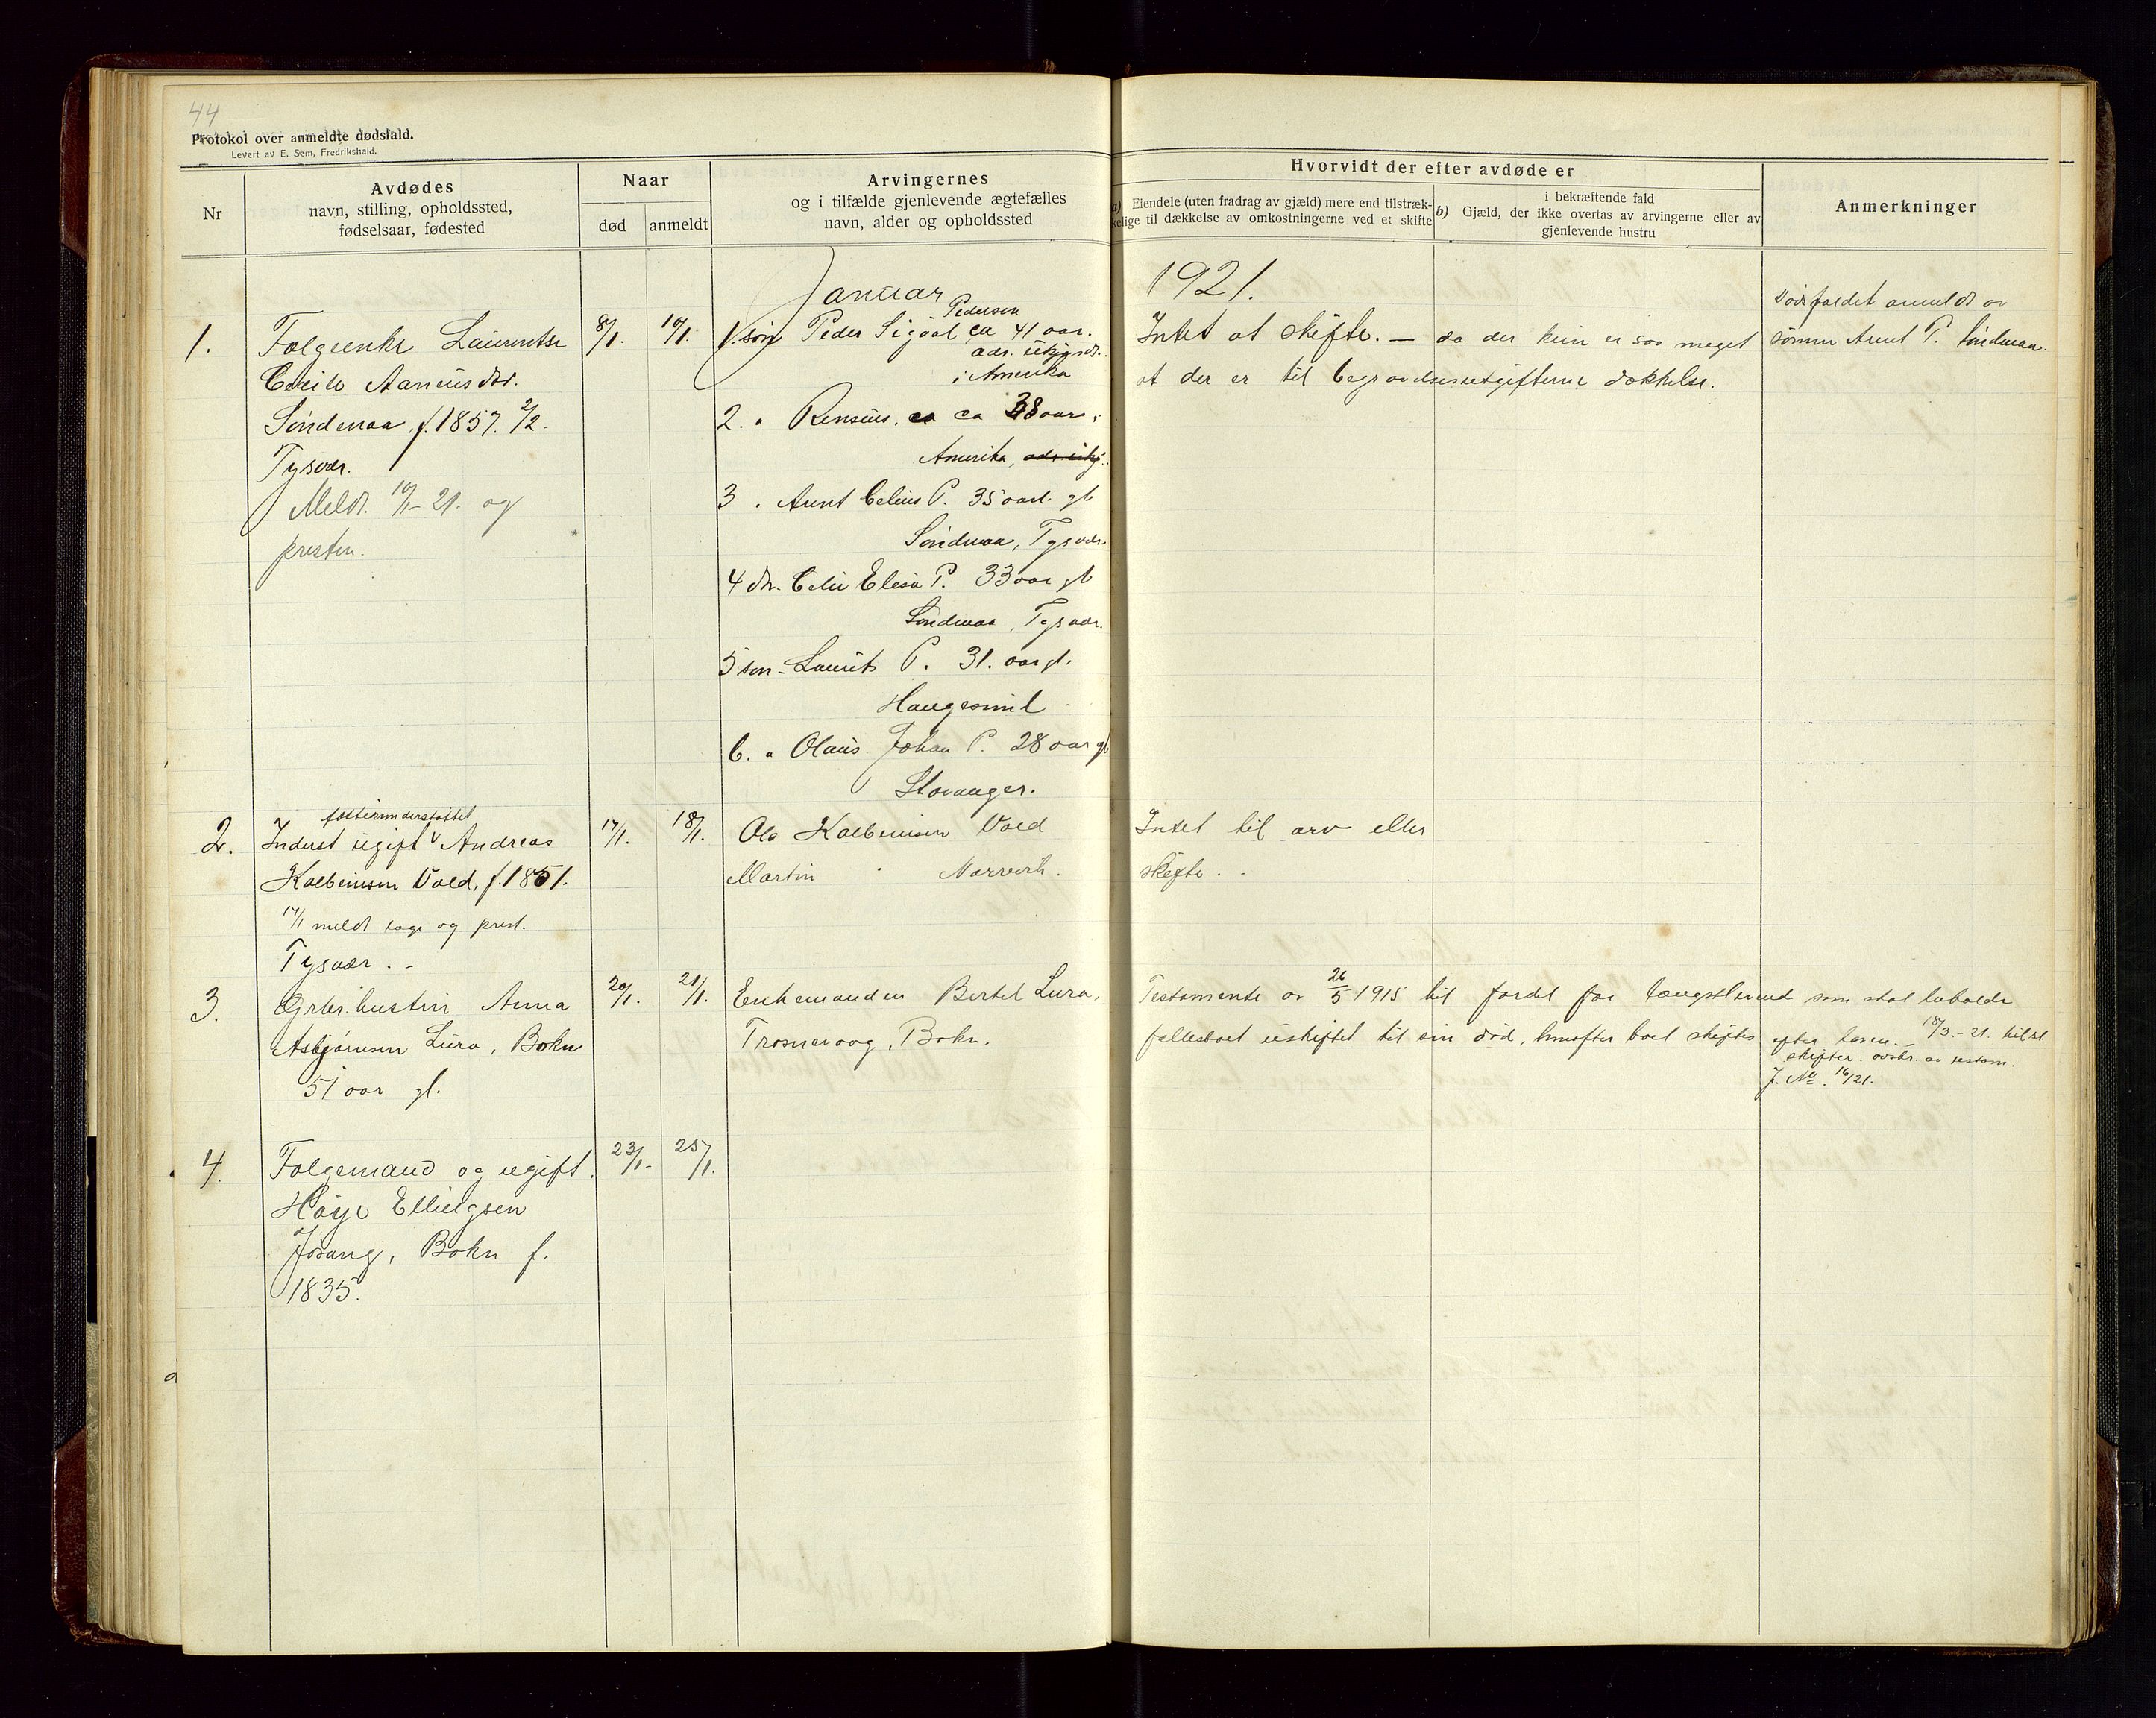 44
Protokol over anmeldte dødsfald.
Levert av E. Sem, Fredrikshald.
Nr
Avdødes
navn, stilling, opholdssted,
fødselsaar, fødested
Naar
død
anmeldt
Arvingernes
og i tilfælde gjenlevende ægtefælles
navn, alder og opholdssted
Hvorvidt der efter avdøde er
a) Eiendele (uten fradrag av gjæld) mere end tilstræk-
kelige til dækkelse av omkostningerne ved et skifte
b) i bekræftende fald
Gjæld, der ikke overtas av arvingerne eller av
gjenlevende hustru
Anmerkninger
Januar 1921.
1.
Folgeenke Laurentse
Cecile Aanensdtr.
Söndenaa, f. 1857. 2/2.
Tysvær.
Meldt 10/1-21. og
presten.
8/1.
10/1.
Pedersen
1. sön Peder Sigval ca 41 aar.
adr. ukjendt.
i Amerika
2. " Rensius, ca 38 aar i
Amerika, adr. ukj.
3 " Arent Celius P. 35 aar gl
Söndenaa, Tysvær.
4 dtr. Celie Elesa P. 33 aar gl
Söndenaa, Tysvær.
5 sön - Laurits P. 31. aar gl.
Haugesund
6. " Olaus Johan P. 28 aar gl
Stavanger.
Intet at skifte. — da der kun er saa meget
at der er til begravelsesutgifterne dækkelse.
Dödsfaldet anmeldt av
sönnen Arent P. Söndenaa.
2.
fattigunderstöttet
Inderst ugift Andreas
Kolbeinsen Vold, f. 1851.
17/1 meldt lage og prest.
Tysvær. -
17/1.
18/1.
Ola Kolbeinsen Vold
Martin " Narrevik.
Intet til arv eller
skifte. -
3.
Grbr. hustru Anna
Asbjörnsen Lura, Bokn
51 aar gl.
20/1.
21/1.
Enkemanden Bertel Lura,
Trosnavaag, Bokn.
Testamente av 26/5 1915 til fordel for længstlevende som skal beholde
fællesboet uskiftet til sin död, hvorefter boet skiftes efter loven. - 18/3.-21. tilst.
skifter. avskr. av testam.
J. No. 16/21.
4.
Folgemand og ugift
Höye Ellingsen
Jösang, Bokn f.
1835.
23/1-
25/1.